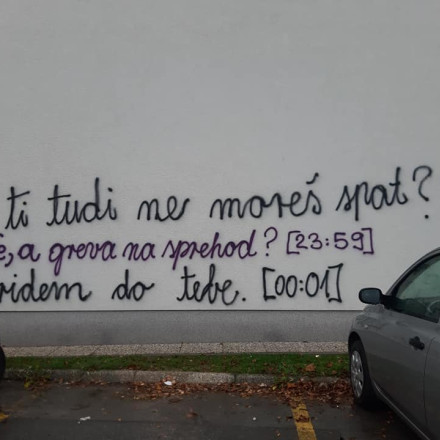 ti tudi ne moreš spat?
, a greva na sprehod? [23:59]
ridem do tebe. [00:01]